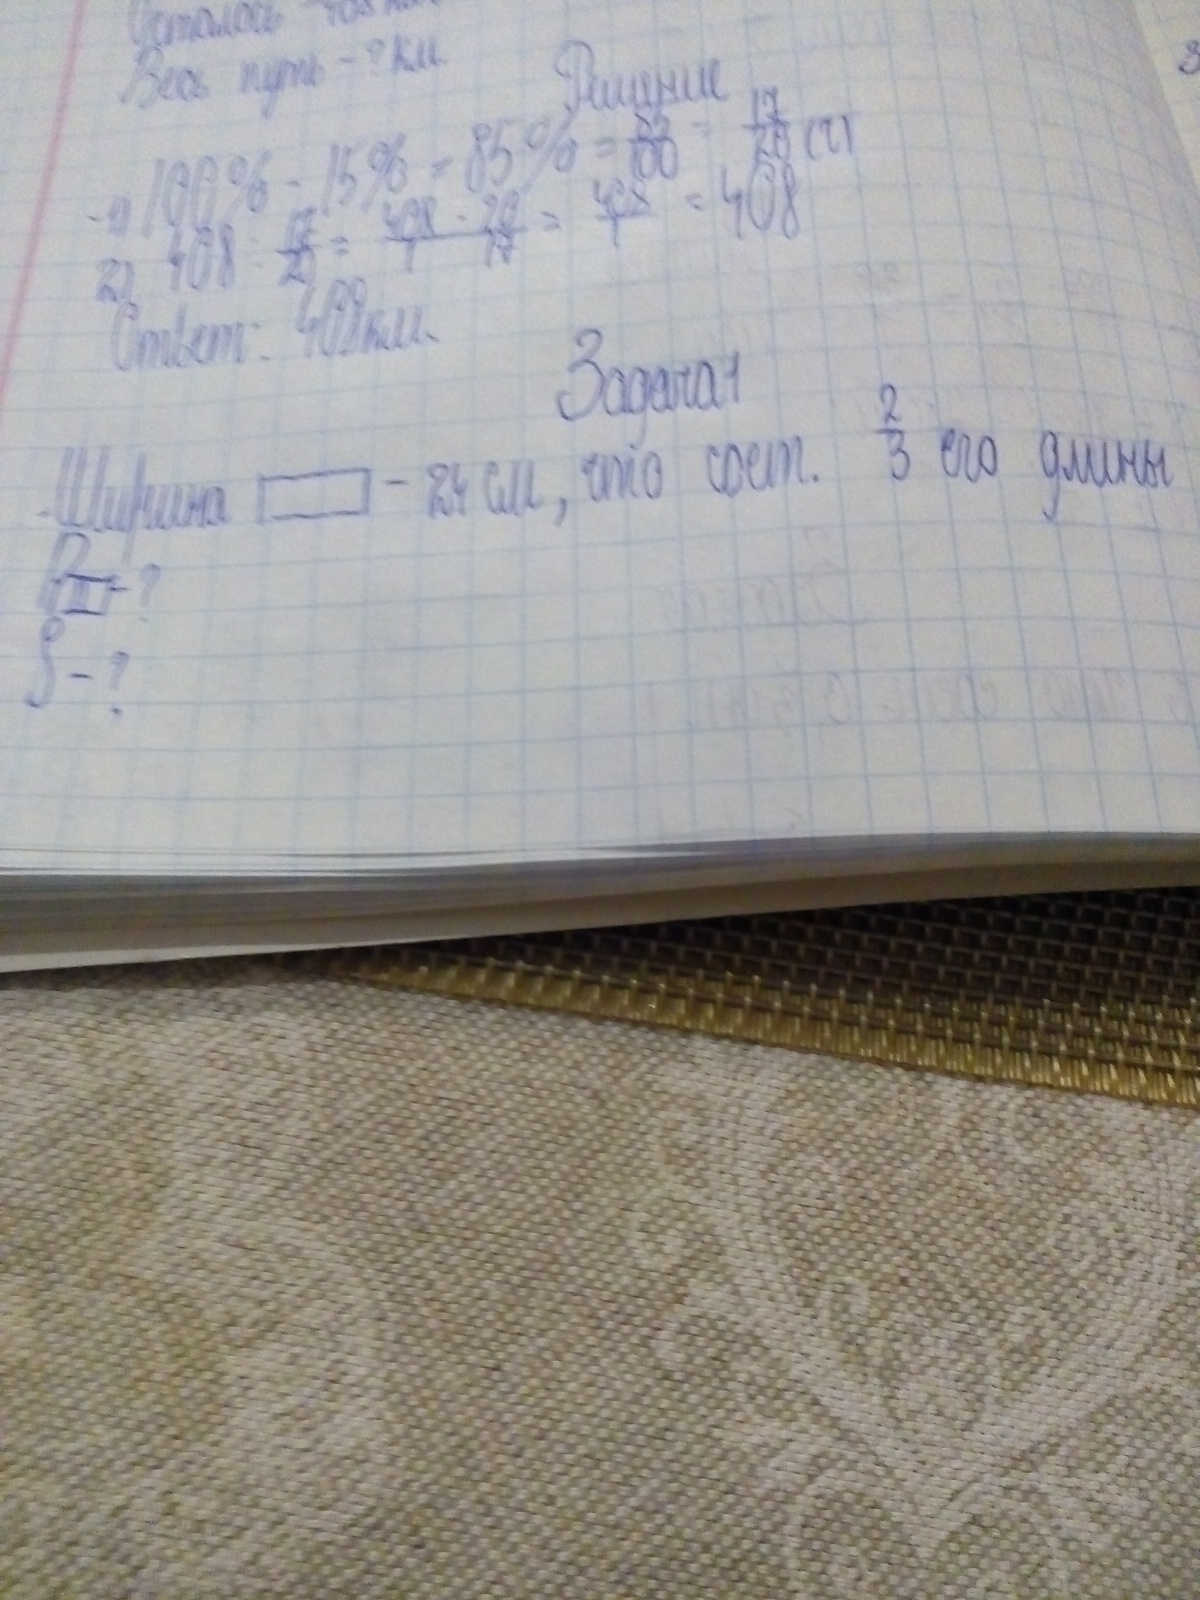 Осталось - 408 км
Весь путь - ? км
Решение
1) 100% - 15% = 85% = 85/100 = 17/20 (ч)
2) 408 : 17/20 = 408 · 20 / 1 · 17 = 408/1 = 408
Ответ: 408 км.
Задача 1
Ширина - 24 см, что сост. 2/3 его длины
P - ?
S - ?